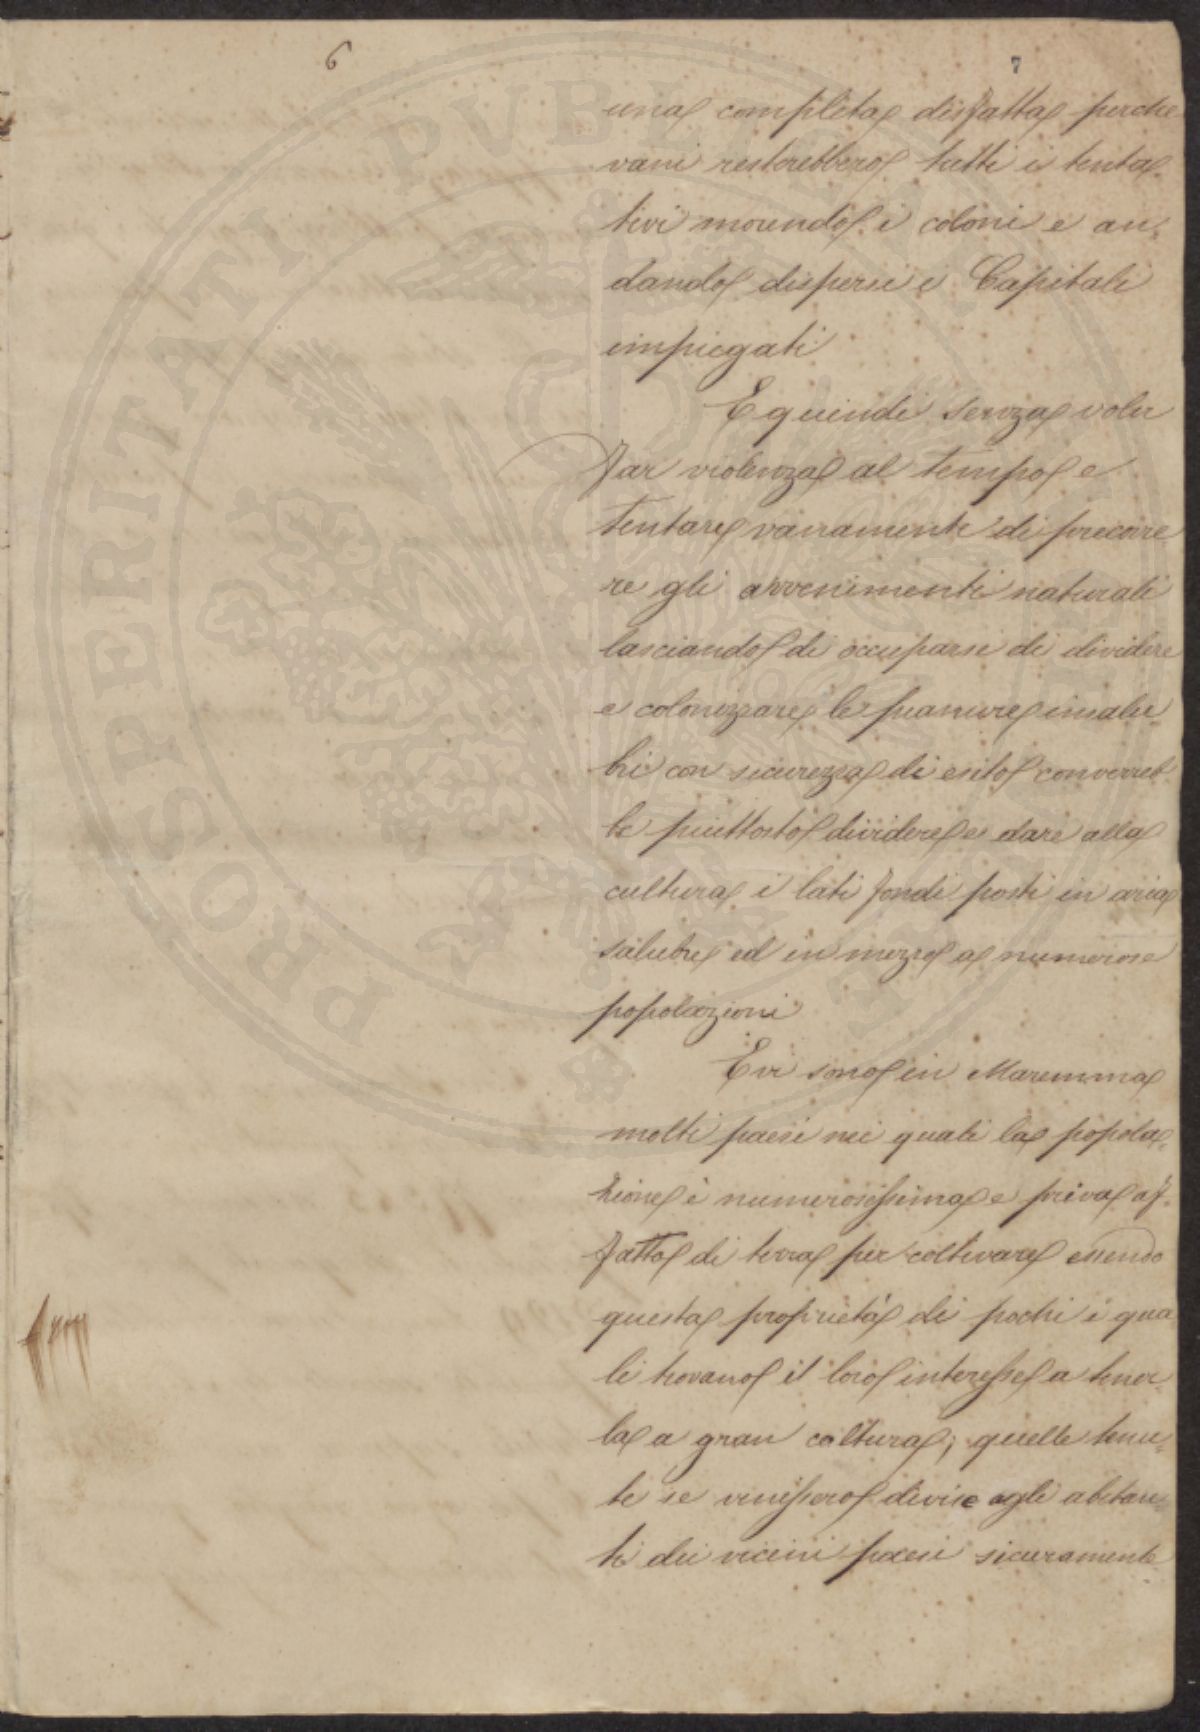 6
7
una completa disfatta perche
vani resterebbero tutti i tenta-
tivi morendo i coloni e an-
dando dispersi i Capitali
impiegati
E quindi senza voler
far violenza al tempo e
tentare vanamente di precorre
re gli avvenimenti naturali
lasciando di occuparsi di dividere
e colonizzare le pianure insalu-
bri con sicurezza di esito converreb-
be piuttosto dividere e dare alla
cultura i lati fondi posti in aria
salubre ed in mezzo a numerose
popolazioni
E vi sono in Maremma
molti paesi nei quali la popola-
zione è numerosissima e priva af-
fatto di terra per coltivare essendo
questa proprietà di pochi i qua
li trovano il loro interesse a tener
la a gran coltura; quelle tenu-
te se venissero divise agli abitan-
ti dei vicini paesi sicuramente
PROSPERITATI PVBLICAE